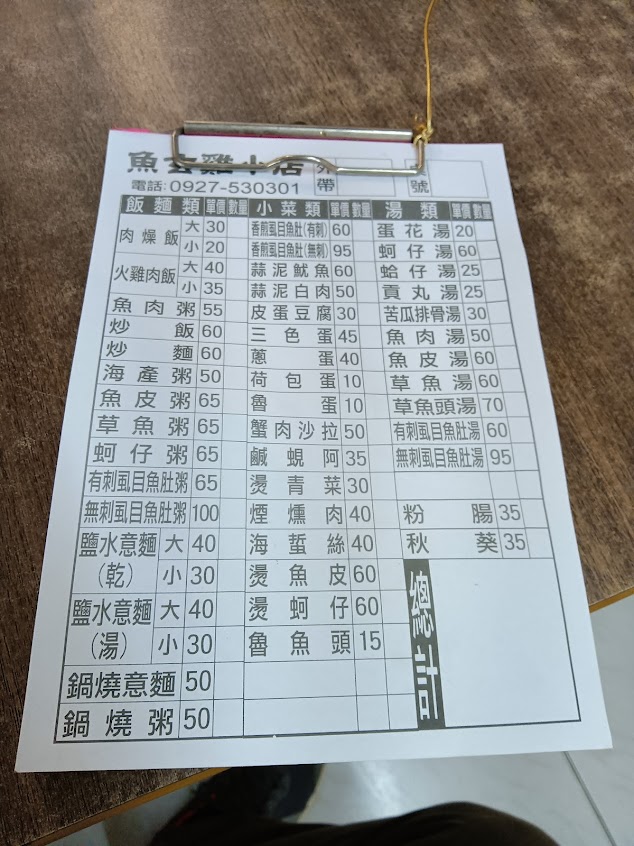 魚 雞 店
外帶
號
電話:0927-530301
飯麵類 單價 數量
肉燥飯 大 30
小 20
火雞肉飯 大 40
小 35
魚肉粥 55
炒飯 60
炒麵 60
海產粥 50
魚皮粥 65
草魚粥 65
蚵仔粥 65
有刺虱目魚肚粥 65
無刺虱目魚肚粥 100
鹽水意麵(乾) 大 40
小 30
鹽水意麵(湯) 大 40
小 30
鍋燒意麵 50
鍋燒粥 50
小菜類 單價 數量
香煎虱目魚肚(有刺) 60
香煎虱目魚肚(無刺) 95
蒜泥魷魚 60
蒜泥白肉 50
皮蛋豆腐 30
三色蛋 45
蔥蛋 40
荷包蛋 10
魯蛋 10
蟹肉沙拉 50
鹹蜆阿 35
燙青菜 30
煙燻肉 40
海蜇絲 40
燙魚皮 60
燙蚵仔 60
魯魚頭 15
湯類 單價 數量
蛋花湯 20
蚵仔湯 60
蛤仔湯 25
貢丸湯 25
苦瓜排骨湯 30
魚肉湯 50
魚皮湯 60
草魚湯 60
草魚頭湯 70
有刺虱目魚肚湯 60
無刺虱目魚肚湯 95
粉腸 35
秋葵 35
總計